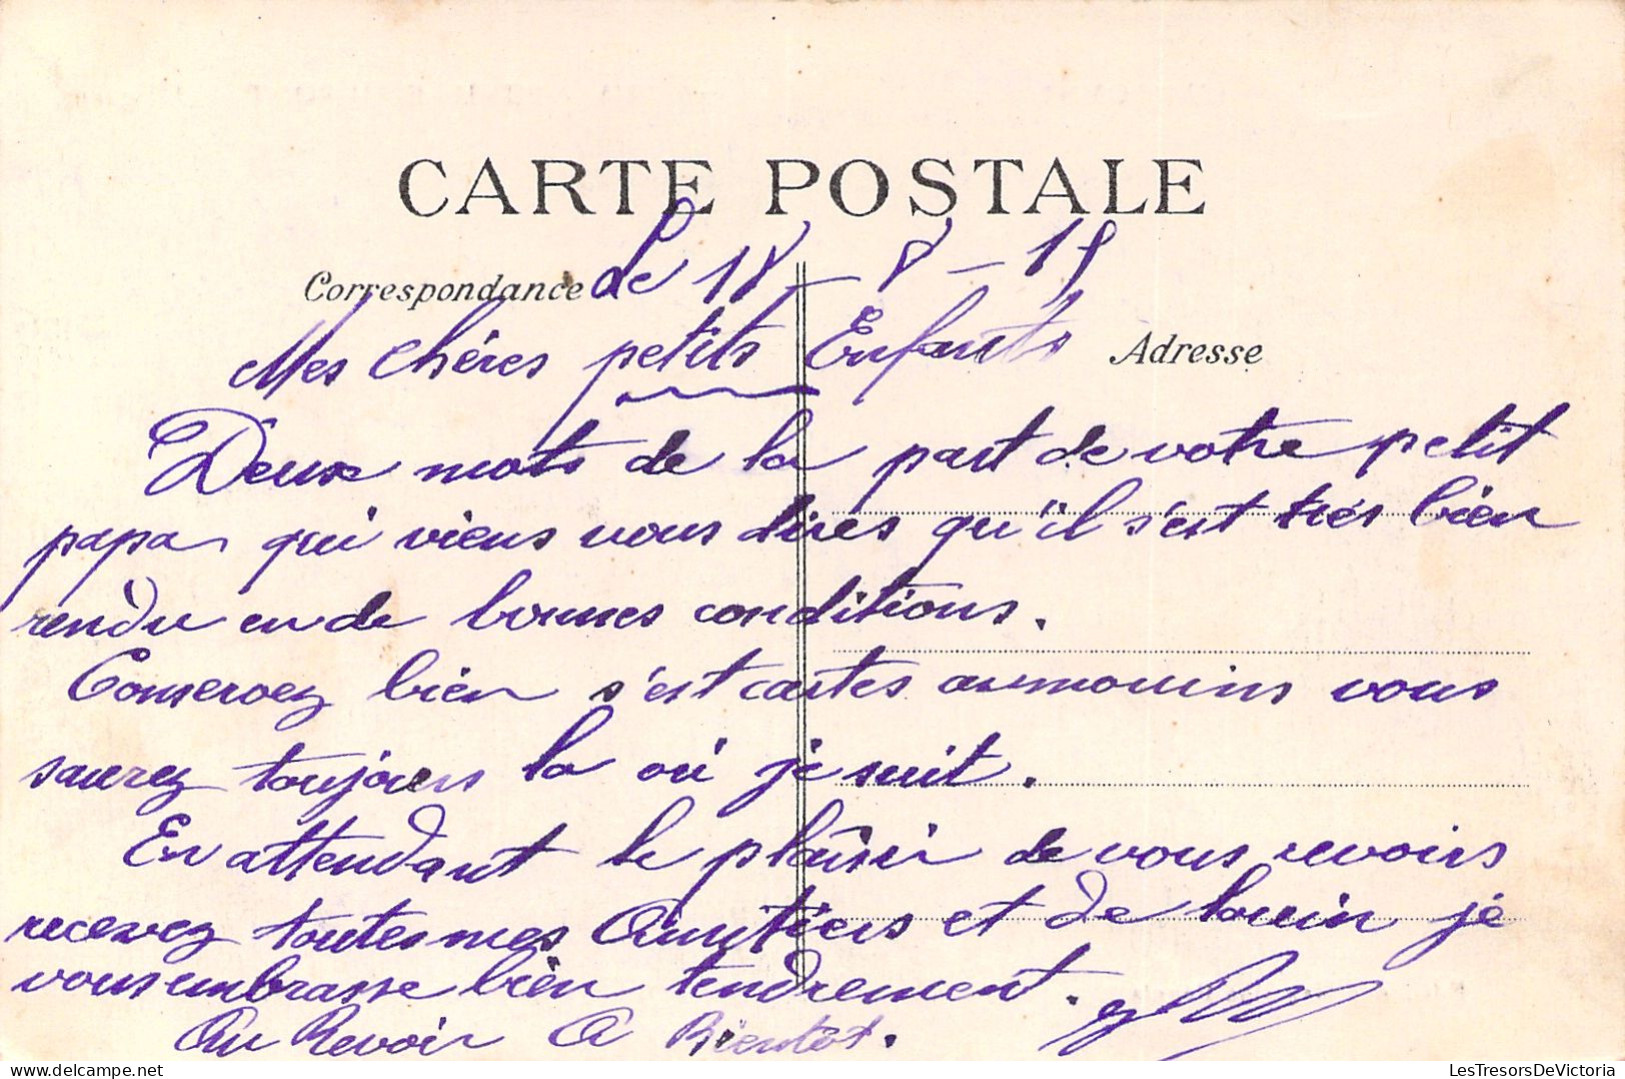 CARTE POSTALE
Correspondance
Le 18 – 8 – 15
Adresse
Mes chéres petits Enfants
Deux mots de la part de votre petit
papa qui viens vous dires qu'il s'est trés bien
rendu en de bonnes conditions.
Conservez bien s'est cartes aumouins vous
saurez toujours la où je suit.
En attendant le plaisir de vous revoirs
recevez toutes mes Amitiers et de louin je
vous embrasse bien tendrement.
Au Revoir A Bientôt.
LesTresorsDeVictoria